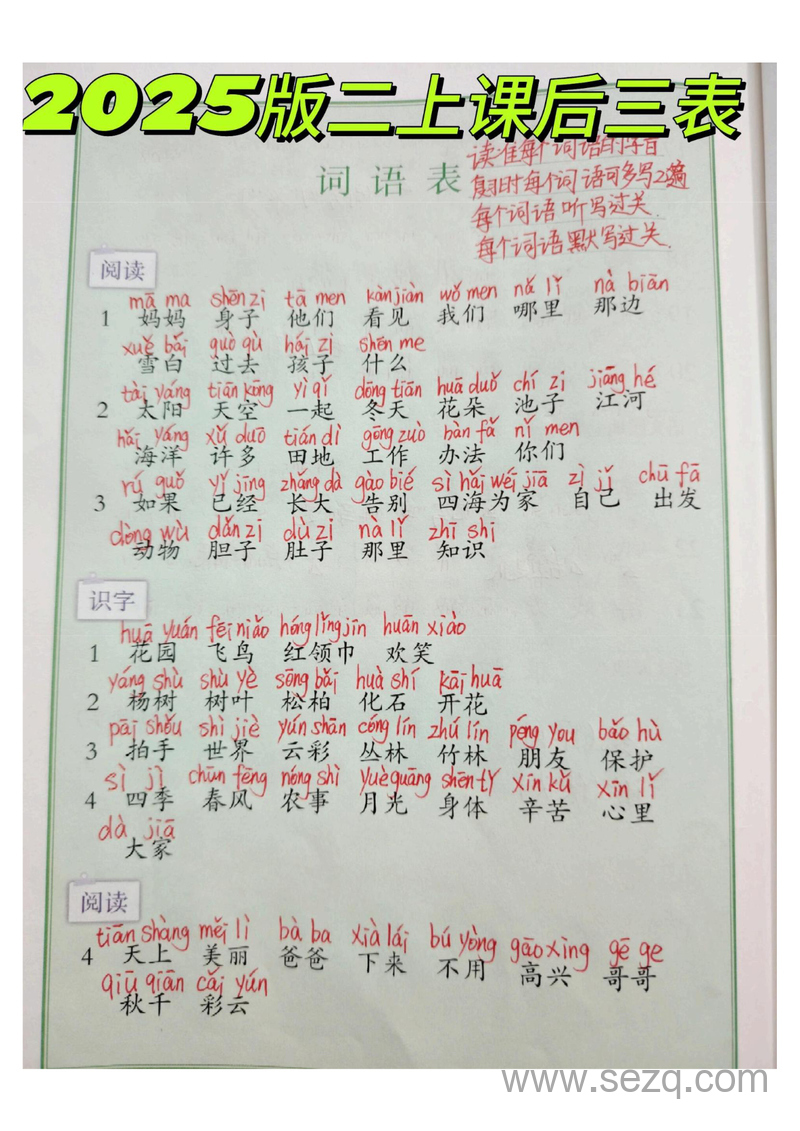 2025版二上课后三表
词语表
读准每个词语的字音
复习时每个词语可多写2遍
每个词语听写过关.
每个词语默写过关.
阅读
mā ma shēn zi tā men kàn jiàn wǒ men nǎ lǐ nà biān
1 妈妈 身子 他们 看见 我们 哪里 那边
xuě bái guò qù hái zi shén me
雪白 过去 孩子 什么
tài yáng tiān kōng yì qǐ dōng tiān huā duǒ chí zi jiāng hé
2 太阳 天空 一起 冬天 花朵 池子 江河
hǎi yáng xǔ duō tián dì gōng zuò bàn fǎ nǐ men
海洋 许多 田地 工作 办法 你们
rú guǒ yǐ jīng zhǎng dà gào bié sì hǎi wéi jiā zì jǐ chū fā
3 如果 已经 长大 告别 四海为家 自己 出发
dòng wù dǎn zi dù zi nà lǐ zhī shi
动物 胆子 肚子 那里 知识
识字
huā yuán fēi niǎo hóng lǐng jīn huān xiào
1 花园 飞鸟 红领巾 欢笑
yáng shù shù yè sōng bǎi huà shí kāi huā
2 杨树 树叶 松柏 化石 开花
pāi shǒu shì jiè yún shān cóng lín zhú lín péng you bǎo hù
3 拍手 世界 云彩 丛林 竹林 朋友 保护
sì jì chūn fēng nóng shì yuè guāng shēn tǐ xīn kǔ xīn lǐ
4 四季 春风 农事 月光 身体 辛苦 心里
dà jiā
大家
阅读
tiān shàng měi lì bà ba xià lái bú yòng gāo xìng gē ge
4 天上 美丽 爸爸 下来 不用 高兴 哥哥
qiū qiān cǎi yún
秋千 彩云
www.sezq.com